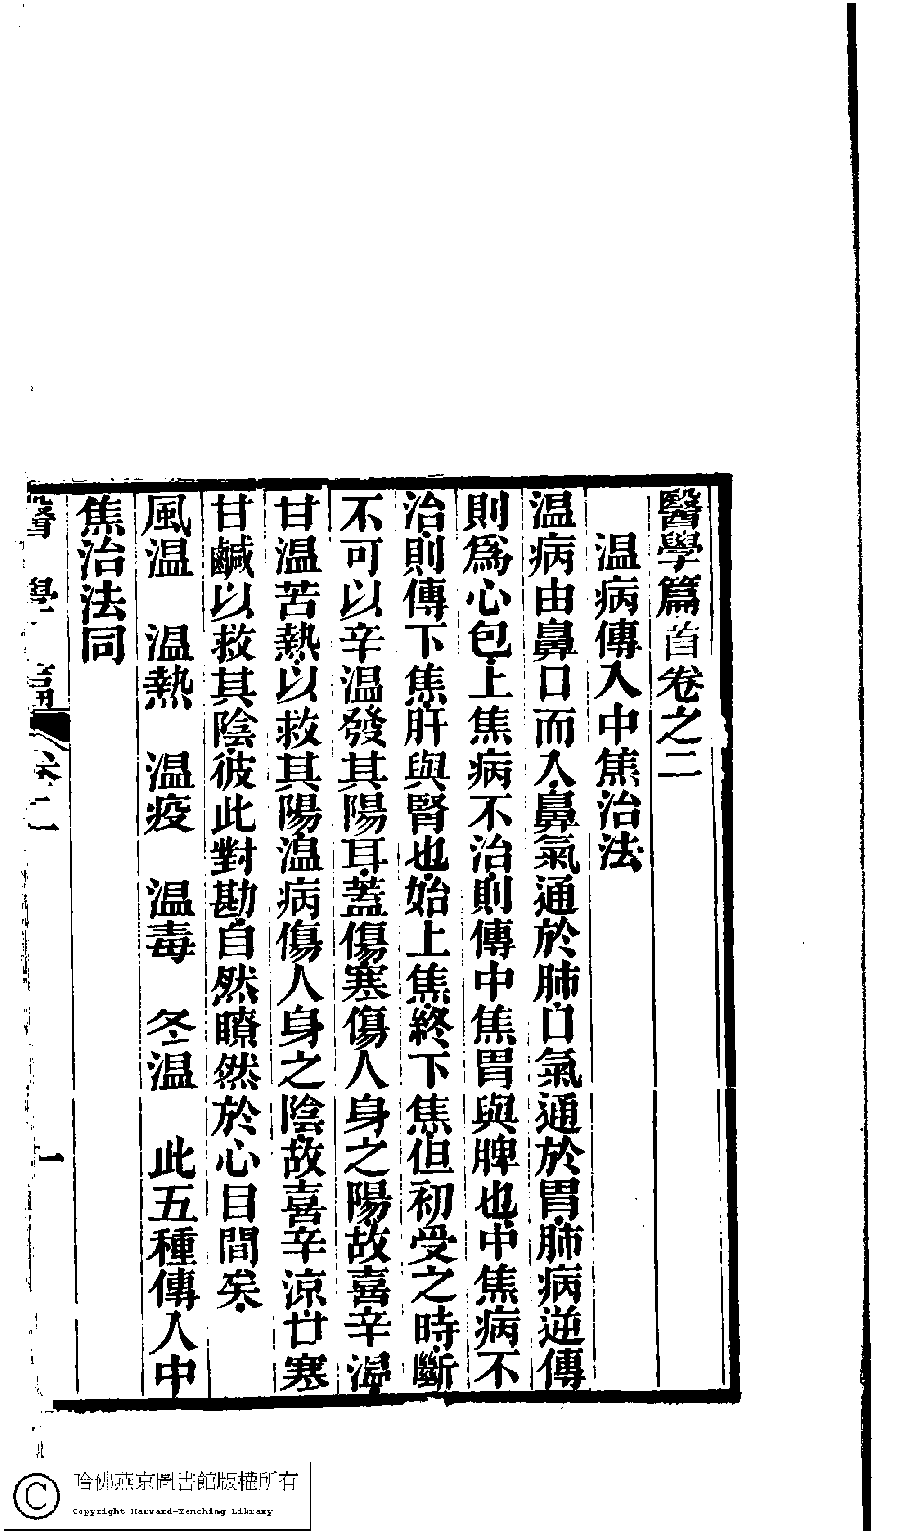 醫學篇首卷之二
温病傳入中焦治法
温病由鼻口而入鼻氣通於肺口氣通於胃肺病逆傳
則爲心包上焦病不治則傳中焦胃與脾也中焦病不
治則傳下焦肝與腎也始上焦終下焦但初受之時斷
不可以辛温發其陽耳蓋傷寒傷人身之陽故喜辛温
甘温苦熱以救其陽温病傷人身之陰故喜辛涼甘寒
甘鹹以救其陰彼此對勘自然瞭然於心目間矣
風温　温熱　温疫　温毒　冬温　此五種傳入中
焦治法同
醫學篇 卷二 一
哈佛燕京圖書館版權所有
Copyright Harvard-Yenching Library